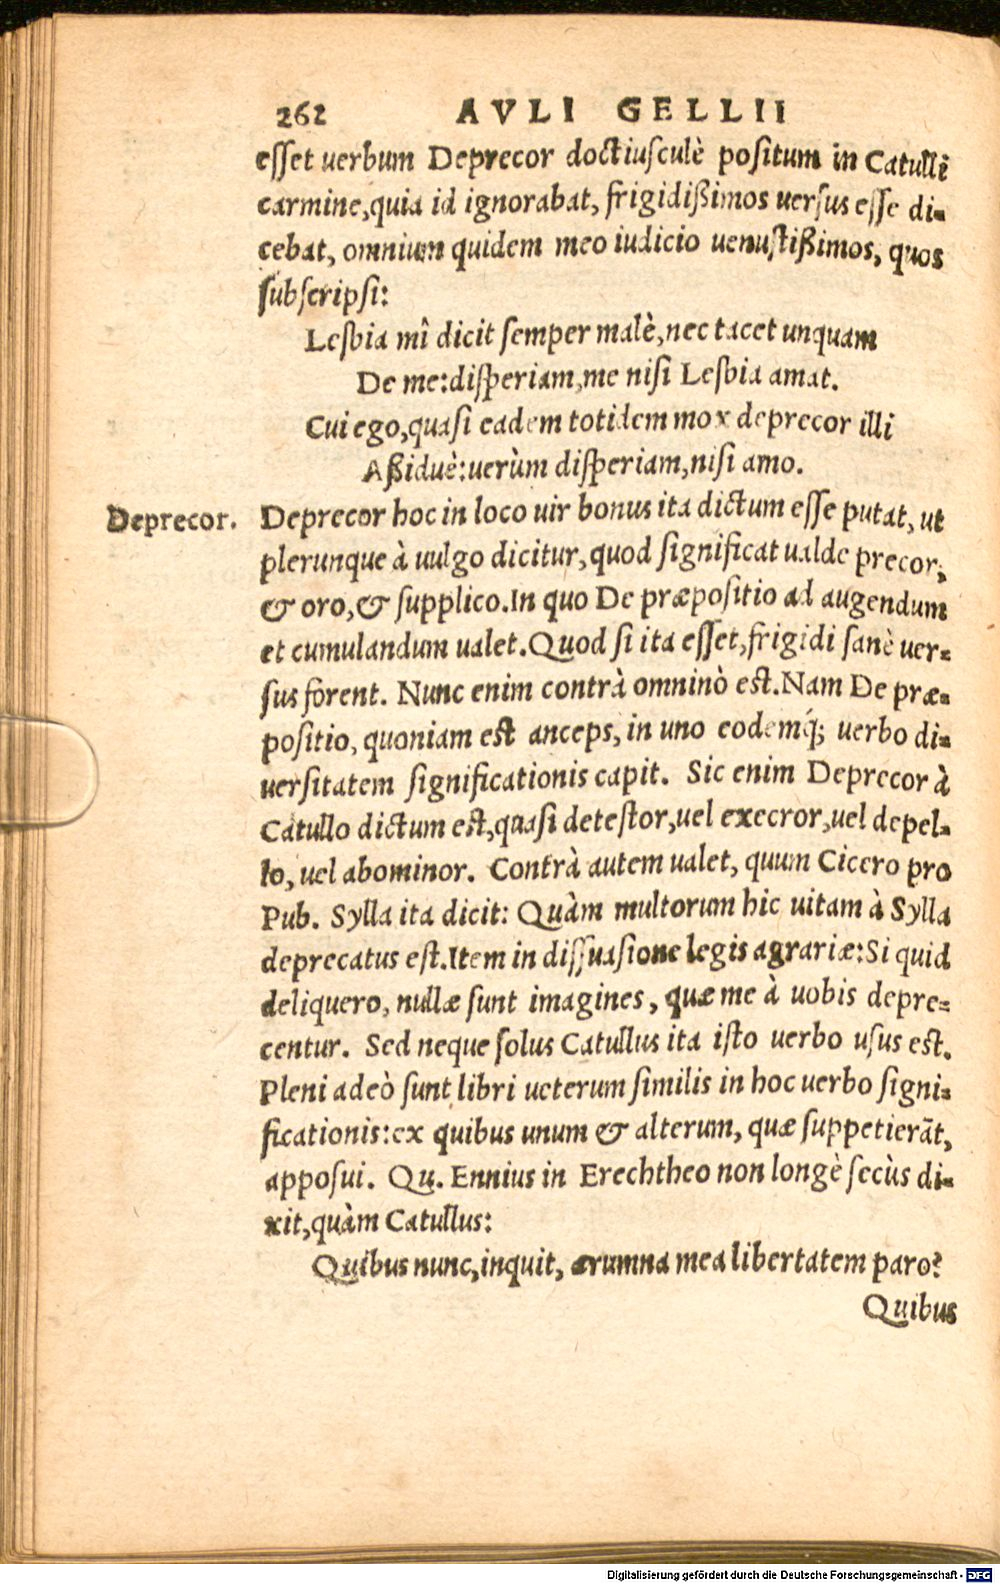 262 AVLI GELLII
esset uerbum Deprecor doctiusculè positum in Catulli
carmine,quia id ignorabat, frigidißimos uersus esse di-
cebat, omnium quidem meo iudicio uenustißimos, quos
subscripsi:
Lesbia mî dicit semper malè,nec tacet unquam
De me:dispeream,me nisi Lesbia amat.
Cui ego,quasi eadem totidem mox deprecor illi
Aßiduè:uerùm disperiam,nisi amo.
Deprecor.
Deprecor hoc in loco uir bonus ita dictum esse putat, ut
plerunque à uulgo dicitur,quod significat ualde precor,
& oro,& supplico.In quo De præpositio ad augendum
et cumulandum ualet.Quod si ita esset,frigidi sanè uer-
sus forent. Nunc enim contrà omninò est.Nam De præ-
positio, quoniam est anceps, in uno eodemq́; uerbo di-
uersitatem significationis capit. Sic enim Deprecor à
Catullo dictum est,quasi detestor,uel execror,uel depel-
lo, uel abominor. Contrà autem ualet, quum Cicero pro
Pub. Sylla ita dicit: Quàm multorum hic uitam à Sylla
deprecatus est.Item in dissuasione legis agrariæ:Si quid
deliquero, nullæ sunt imagines, quæ me à uobis depre-
centur. Sed neque solus Catullus ita isto uerbo usus est.
Pleni adeò sunt libri ueterum similis in hoc uerbo signi-
ficationis:ex quibus unum & alterum, quæ suppetierãt,
apposui. Qu. Ennius in Erechtheo non longè secùs di-
xit,quàm Catullus:
Quibus nunc,inquit, ærumna mea libertatem paro?
Quibus
Digitalisierung gefördert durch die Deutsche Forschungsgemeinschaft - DFG